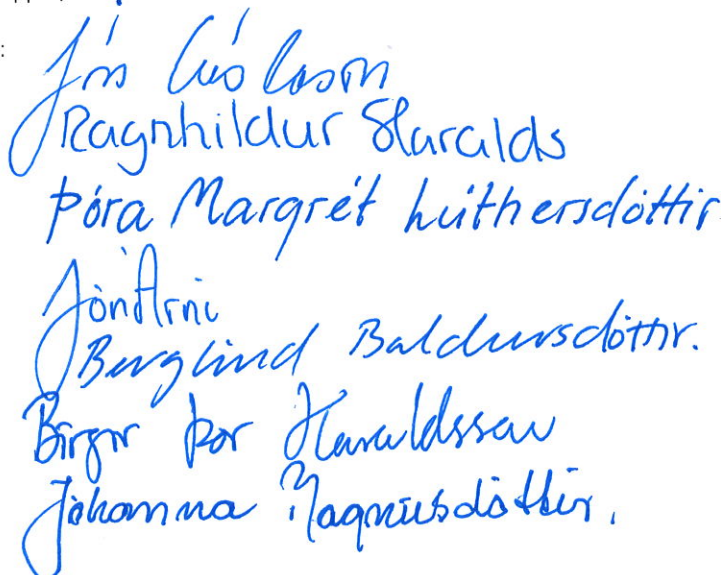 :
Jón
Ragnhildur Haralds
Þóra Margrét Lúthersdóttir.
Jón Árni
Berglind Baldursdóttir.
Birgir Þór Haraldsson
Jóhanna Magnúsdóttir.